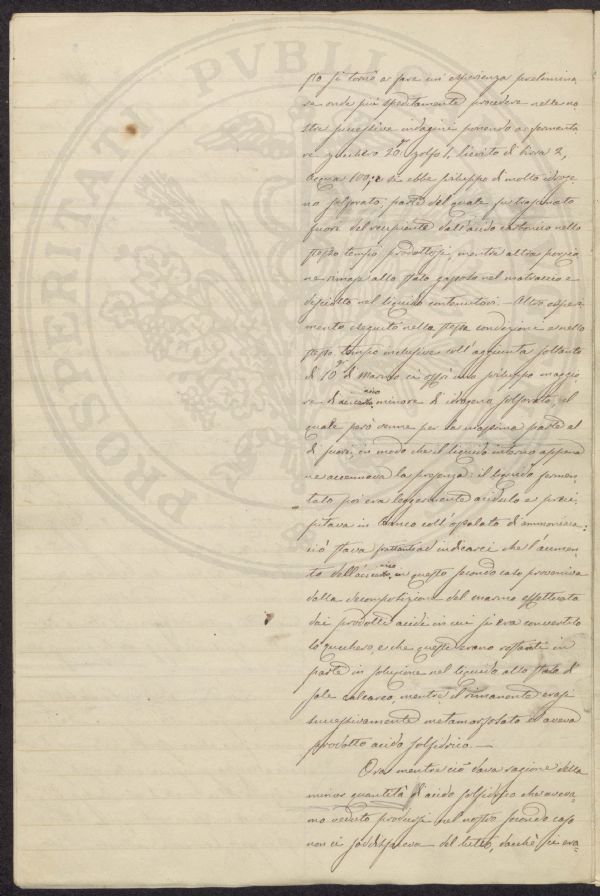 sto si tornò a fare un' esperienza prelimina,
re onde più speditamente procedere nelle no
stre successive indagini ponendo a fermenta
re zucchero 20 gr. zolfo 1, lievito di birra 2,
acqua 100; e si ebbe sviluppo di molto idroge
no solforato, parte del quale fu trasportato
fuori del recipiente dall'acido carbonico nello
stesso tempo prodottosi, mentre altra porzio
ne rimase allo stato gassoso nel matraccio e
disciolto nel liquido contenutovi. – Altro esperi
mento eseguito nella stessa condizione e nello
stesso tempo inclusive coll'aggiunta soltanto
di 10 gr. di marmo ci offrì uno sviluppo maggio
re di minore di idrogeno solforato, il
quale però venne per la massima parte al
di fuori, in modo che il liquido interno appena
ne accennava la presenza: il liquido fermen,
tato poi era leggermente acidulo e preci
pitava in bianco coll'ossalato di ammoniaca:
ciò stava pertanto ad indicarci che l'aumen
to dell' in questo secondo caso proveniva
dalla decomposizione del marmo effettuata
dai prodotti acidi in cui si era convertito
lo zucchero, e che questi erano restanti in
parte in soluzione nel liquido allo stato di
sale calcareo, mentre il rimanente erasi
successivamente metamorfosato ed aveva
prodotto acido solfidrico. —
Ora mentre ciò dava ragione della
minor quantità di acido solfidrico che aveva,
mo veduto prodursi nel nostro secondo caso
non ci soddisfaceva del tutto, dacchè si era-
PROSPERITATI PVBLICAE